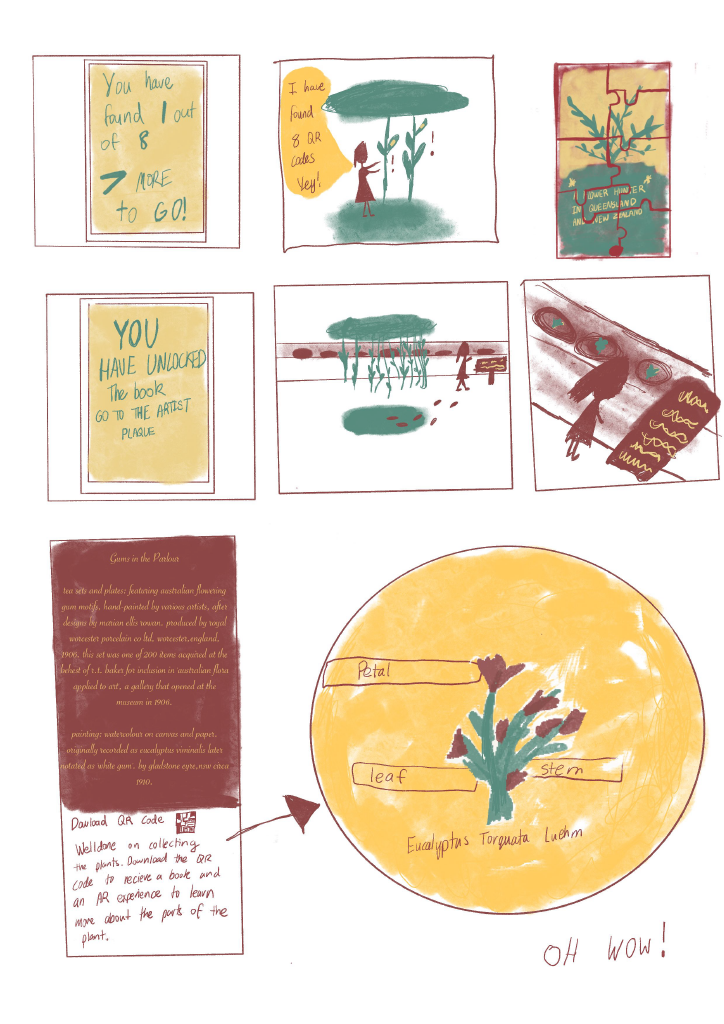 You have
found 1 out
of 8
7 MORE
to GO!
I have
found
8 QR
codes
Yey!
FLOWER HUNTER
IN QUEENSLAND
AND NEW ZEALAND
YOU
HAVE UNLOCKED
The book
GO TO THE ARTIST
PLAQUE
Gums in the Parlour
tea sets and plates: featuring australian flowering
gum motifs, hand-painted by various artists, after
designs by marian ellis rowan. produced by royal
worcester porcelain co ltd, worcester,england,
1906. this set was one of 200 items acquired at the
behest of r.t. baker for inclusion in 'australian flora
applied to art', a gallery that opened at the
museum in 1906.
painting: watercolour on canvas and paper,
originally recorded as eucalyptus viminalis later
notated as 'white gum'. by gladstone eyre,nsw circa
1910.
Dawload QR Code
Welldone on collecting
the plants. Download the QR
code to recieve a book and
an AR experience to learn
more about the parts of the
plant.
Petal
leaf
stem
Eucalyptus Torquata Luehm
OH WOW!